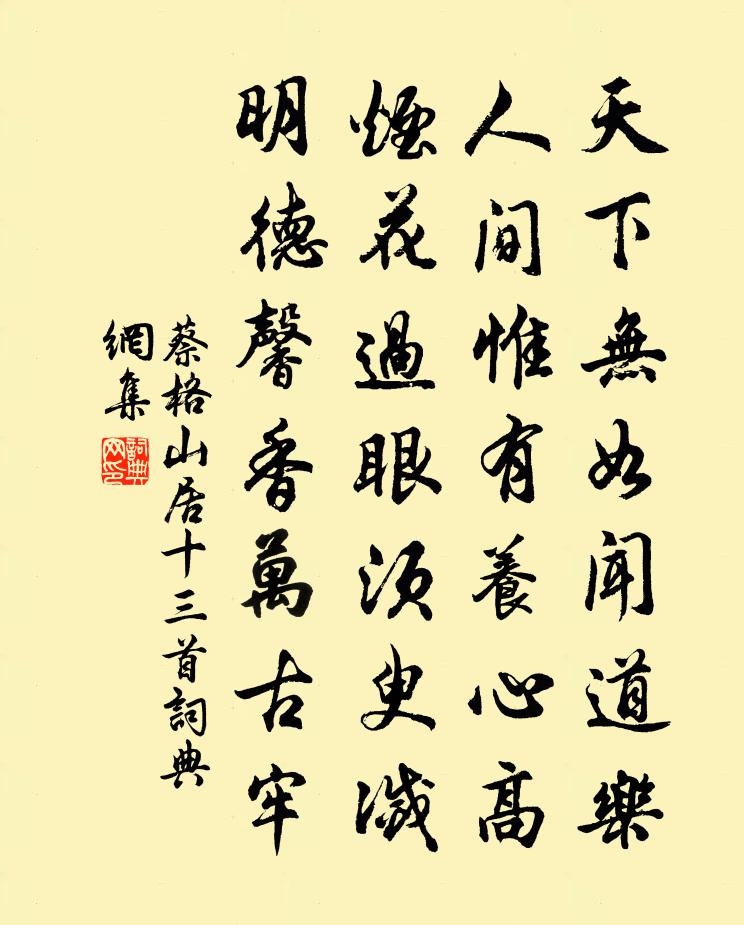 天下無如聞道樂
人間惟有養心高
煙花過眼須臾滅
明德馨香萬古牢
蔡格山居十三首詞典
網集
詞典網印